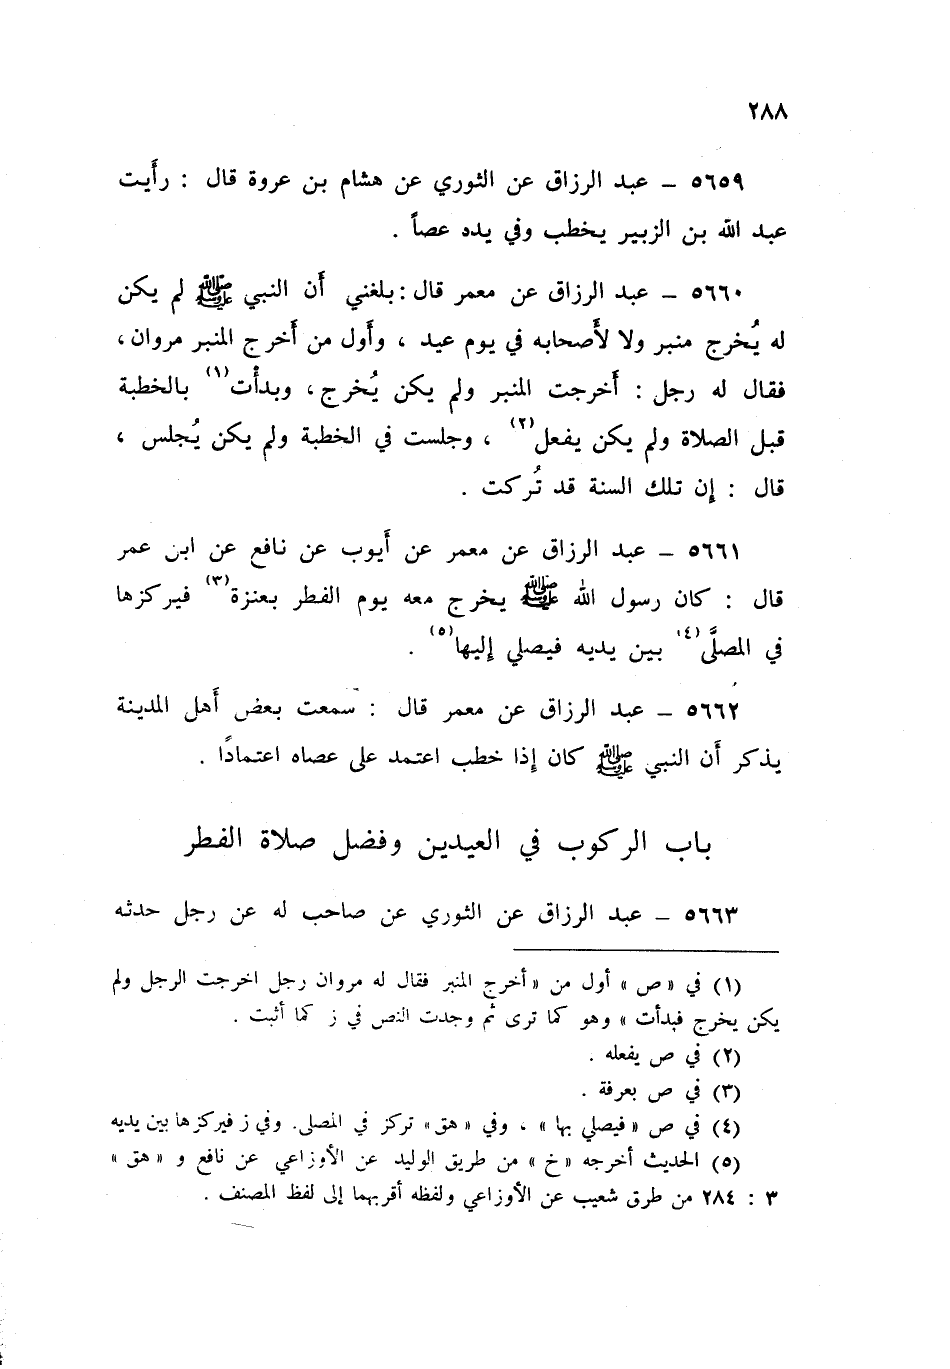 ٢٨٨
٥٦٥٩ – عبد الرزاق عن الثوري عن هشام بن عروة قال : رأَيت
عبد الله بن الزبير يخطب وفي يده عصاً .
٥٦٦٠ – عبد الرزاق عن معمر قال : بلغني أَن النبي ﷺ لم يكن
له يُخرج منبر ولا لأَصحابه في يوم عيد ، وأَول من أَخرج المنبر مروان ،
فقال له رجل : أَخرجت المنبر ولم يكن يُخرج ، وبدأْت(١) بالخطبة
قبل الصلاة ولم يكن يفعل(٢) ، وجلست في الخطبة ولم يكن يُجلس ،
قال : إِن تلك السنة قد تُركت .
٥٦٦١ – عبد الرزاق عن معمر عن أَيوب عن نافع عن ابن عمر
قال : كان رسول الله ﷺ يخرج معه يوم الفطر بعنزة(٣) فيركزها
في المصلَّى(٤) بين يديه فيصلي إِليها(٥) .
٥٦٦٢ – عبد الرزاق عن معمر قال : سمعت بعض أَهل المدينة
يذكر أَن النبي ﷺ كان إِذا خطب اعتمد على عصاه اعتمادًا .
باب الركوب في العيدين وفضل صلاة الفطر
٥٦٦٣ – عبد الرزاق عن الثوري عن صاحب له عن رجل حدثه
(١) في «ص» أول من «أخرج المنبر فقال له مروان رجل اخرجت الرجل ولم
يكن يخرج فبدأت» وهو كما ترى ثم وجدت النص في ز كما أثبت .
(٢) في ص يفعله .
(٣) في ص بعرفة .
(٤) في ص «فيصلي بها» ، وفي «هق» تركز في المصلى. وفي ز فيركزها بين يديه
(٥) الحديث أخرجه «خ» من طريق الوليد عن الأوزاعي عن نافع و «هق»
٣ : ٢٨٤ من طرق شعيب عن الأوزاعي ولفظه أقربهما إلى لفظ المصنف .